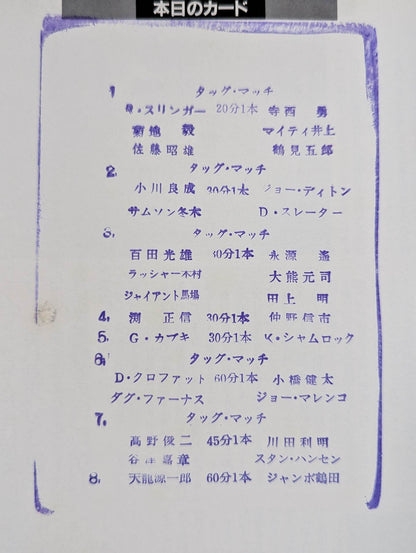 本日のカード
1 タッグ・マッチ
R・スリンガー 20分1本 寺西 勇
菊地 毅 マイティ井上
佐藤昭雄 鶴見五郎
2. タッグ・マッチ
小川良成 30分1本 ジョー・ディトン
サムソン冬木 D・スレーター
3. タッグ・マッチ
百田光雄 30分1本 永源 遙
ラッシャー木村 大熊元司
ジャイアント馬場 田上 明
4. 渕 正信 30分1本 仲野信市
5. G・カブキ 30分1本 K・シャムロック
6. タッグ・マッチ
D・クロファット 60分1本 小橋健太
ダグ・ファーナス ジョー・マレンコ
7. タッグ・マッチ
高野俊二 45分1本 川田利明
谷津嘉章 スタン・ハンセン
8. 天龍源一郎 60分1本 ジャンボ鶴田